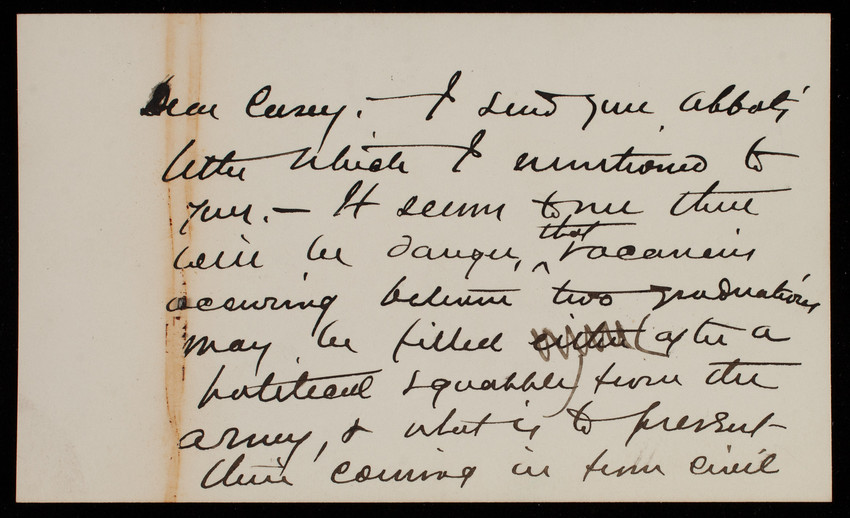 Dear Casey, — I send you Abbot's
letter which I mentioned to
you. — It seems to me there
will be danger, that vacancies
occuring between two graduations
may be filled either after a
political squabble from the
army, & what is to prevent
their coming in from civil